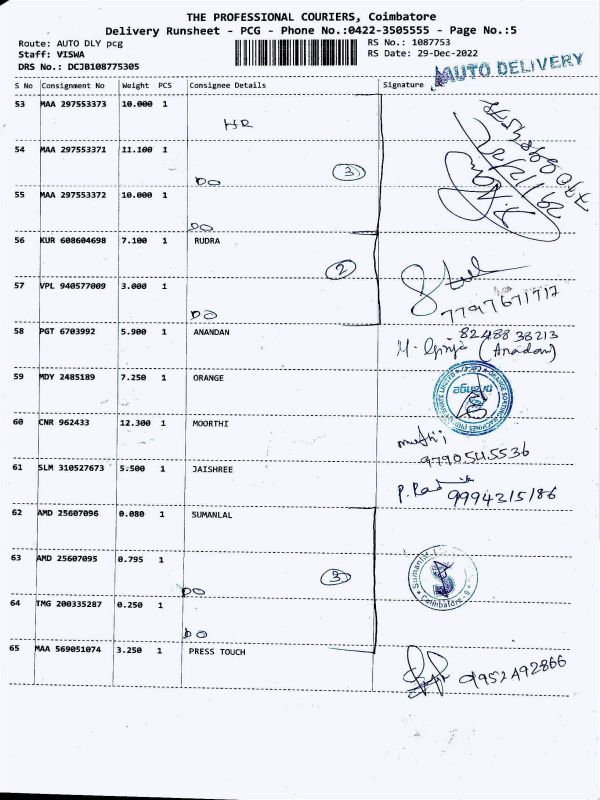 THE PROFESSIONAL COURIERS, Coimbatore
Delivery Runsheet - PCG - Phone No.:0422-3505555 - Page No.:5
Route: AUTO DLY pcg
Staff: VISWA
DRS No.: DCJB108775305
RS No.: 1087753
RS Date: 29-Dec-2022
AUTO DELIVERY
S No Consignment No Weight PCS Consignee Details Signature
53 MAA 297553373 10.000 1
HR
54 MAA 297553371 11.100 1
3
DO
55 MAA 297553372 10.000 1
DO
29/12/22
56 KUR 608604698 7.100 1 RUDRA
2
57 VPL 940577009 3.000 1
DO
7797671717
58 PGT 6703992 5.900 1 ANANDAN
8248838213
M. Girija (Anadan)
59 MDY 2485189 7.250 1 ORANGE
orange
60 CNR 962433 12.300 1 MOORTHI
9790545536
61 SLM 310527673 5.500 1 JAISHREE
9994315186
62 AMD 25607096 0.080 1 SUMANLAL
63 AMD 25607095 0.795 1
3
DO
Sumanlal
Coimbatore
64 TMG 200335287 0.250 1
DO
65 MAA 569051074 3.250 1 PRESS TOUCH
9952492866